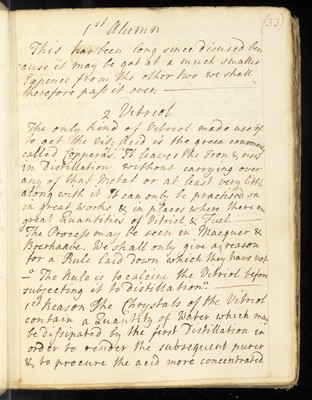 (33)
1st Alumn
This has been long since disused bec
ause it may be got at a much smaller
Expence from the other two we shall
therefore pass it over.
2 Vitriol
The only kind of Vitriol made use of
to get the Vitc Acid is the green commonly
called Copperas. It leaves the Iron & rises
in Distillation without carrying over
any of that Metal or at least very little
along with it It can only be practised on
in great works & in places where there are
great Quantities of Vitriol & Fuel
The Process may be seen in Macquer &
Boerhaave. We shall only give a reason
for a Rule laid down which they have not
The Rule is to calcine the Vitriol before
subjecting it to Distillation.
1st Reason The Chrystals of the Vitriol
contain a Quantity of Water which may
be dissipated by the first Distillation in
order to render the subsequent purer
& to procure the acid more concentrated